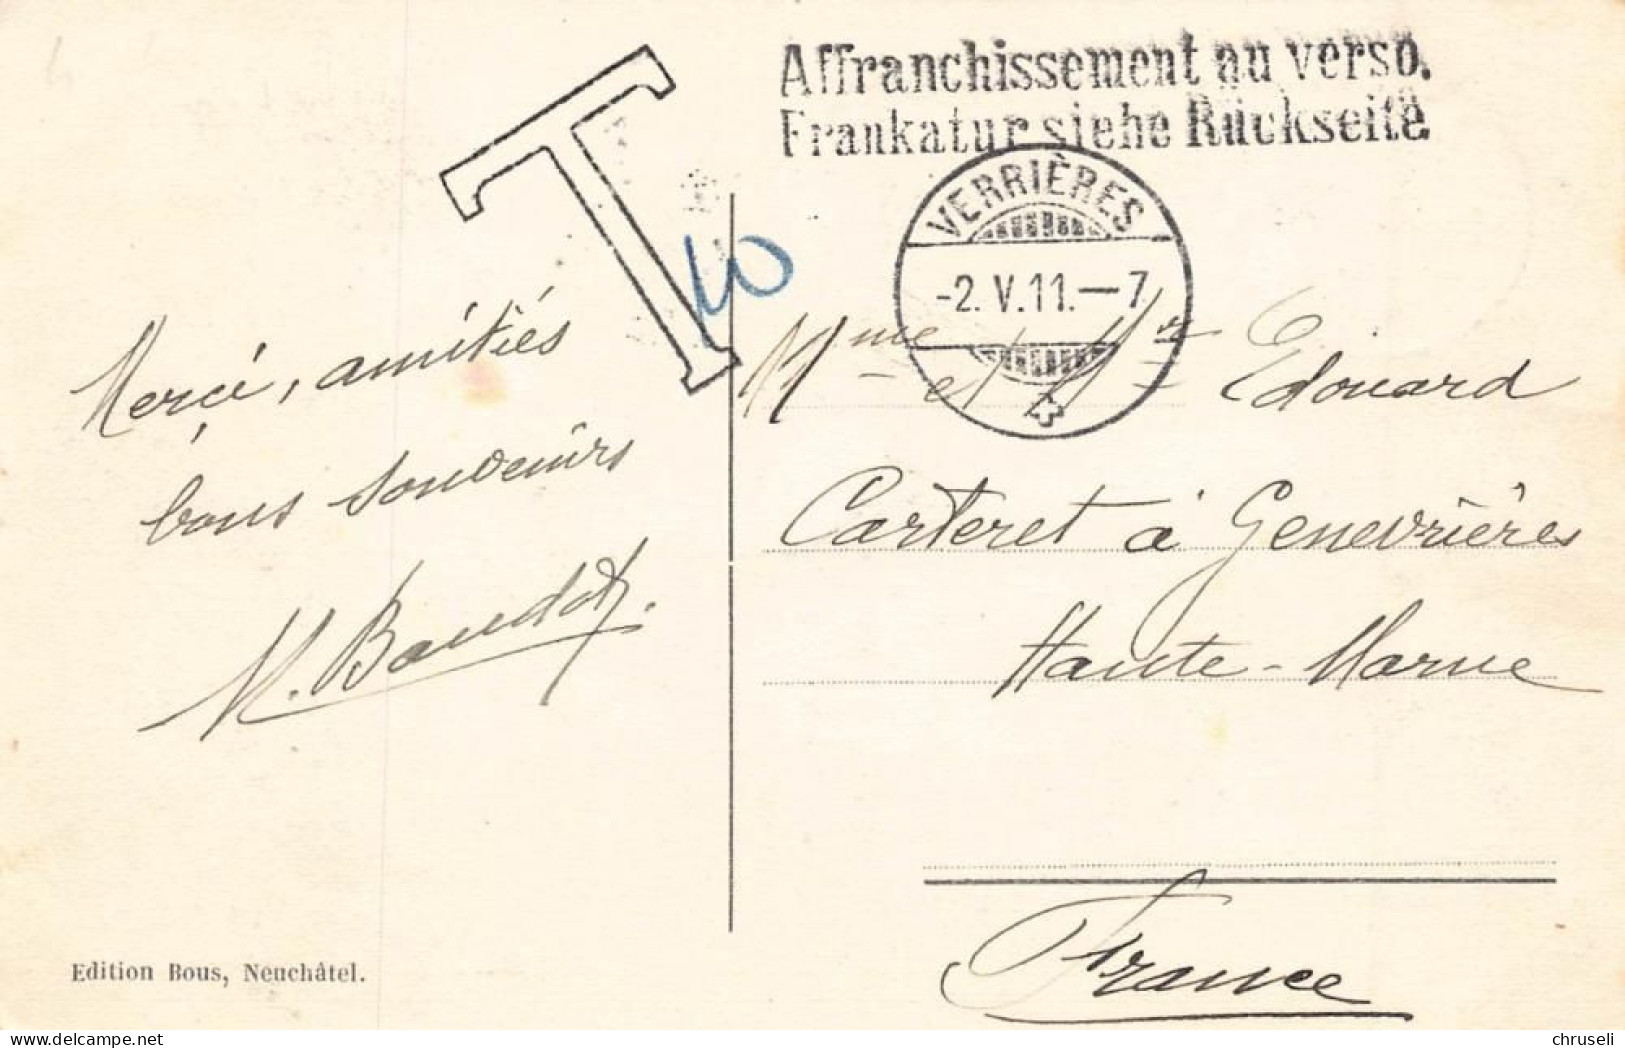 Affranchissement au verso.
Frankatur siehe Rückseite.
T
10
VERRIÈRES
-2. V. 11. — 7
Merçi, amitiés
bons souvenirs
M. Baudot.
Mme et Mr Edouard
Carteret à Genevrières
Haute-Marne
France
Edition Bous, Neuchâtel.
delcampe.net
chruseli